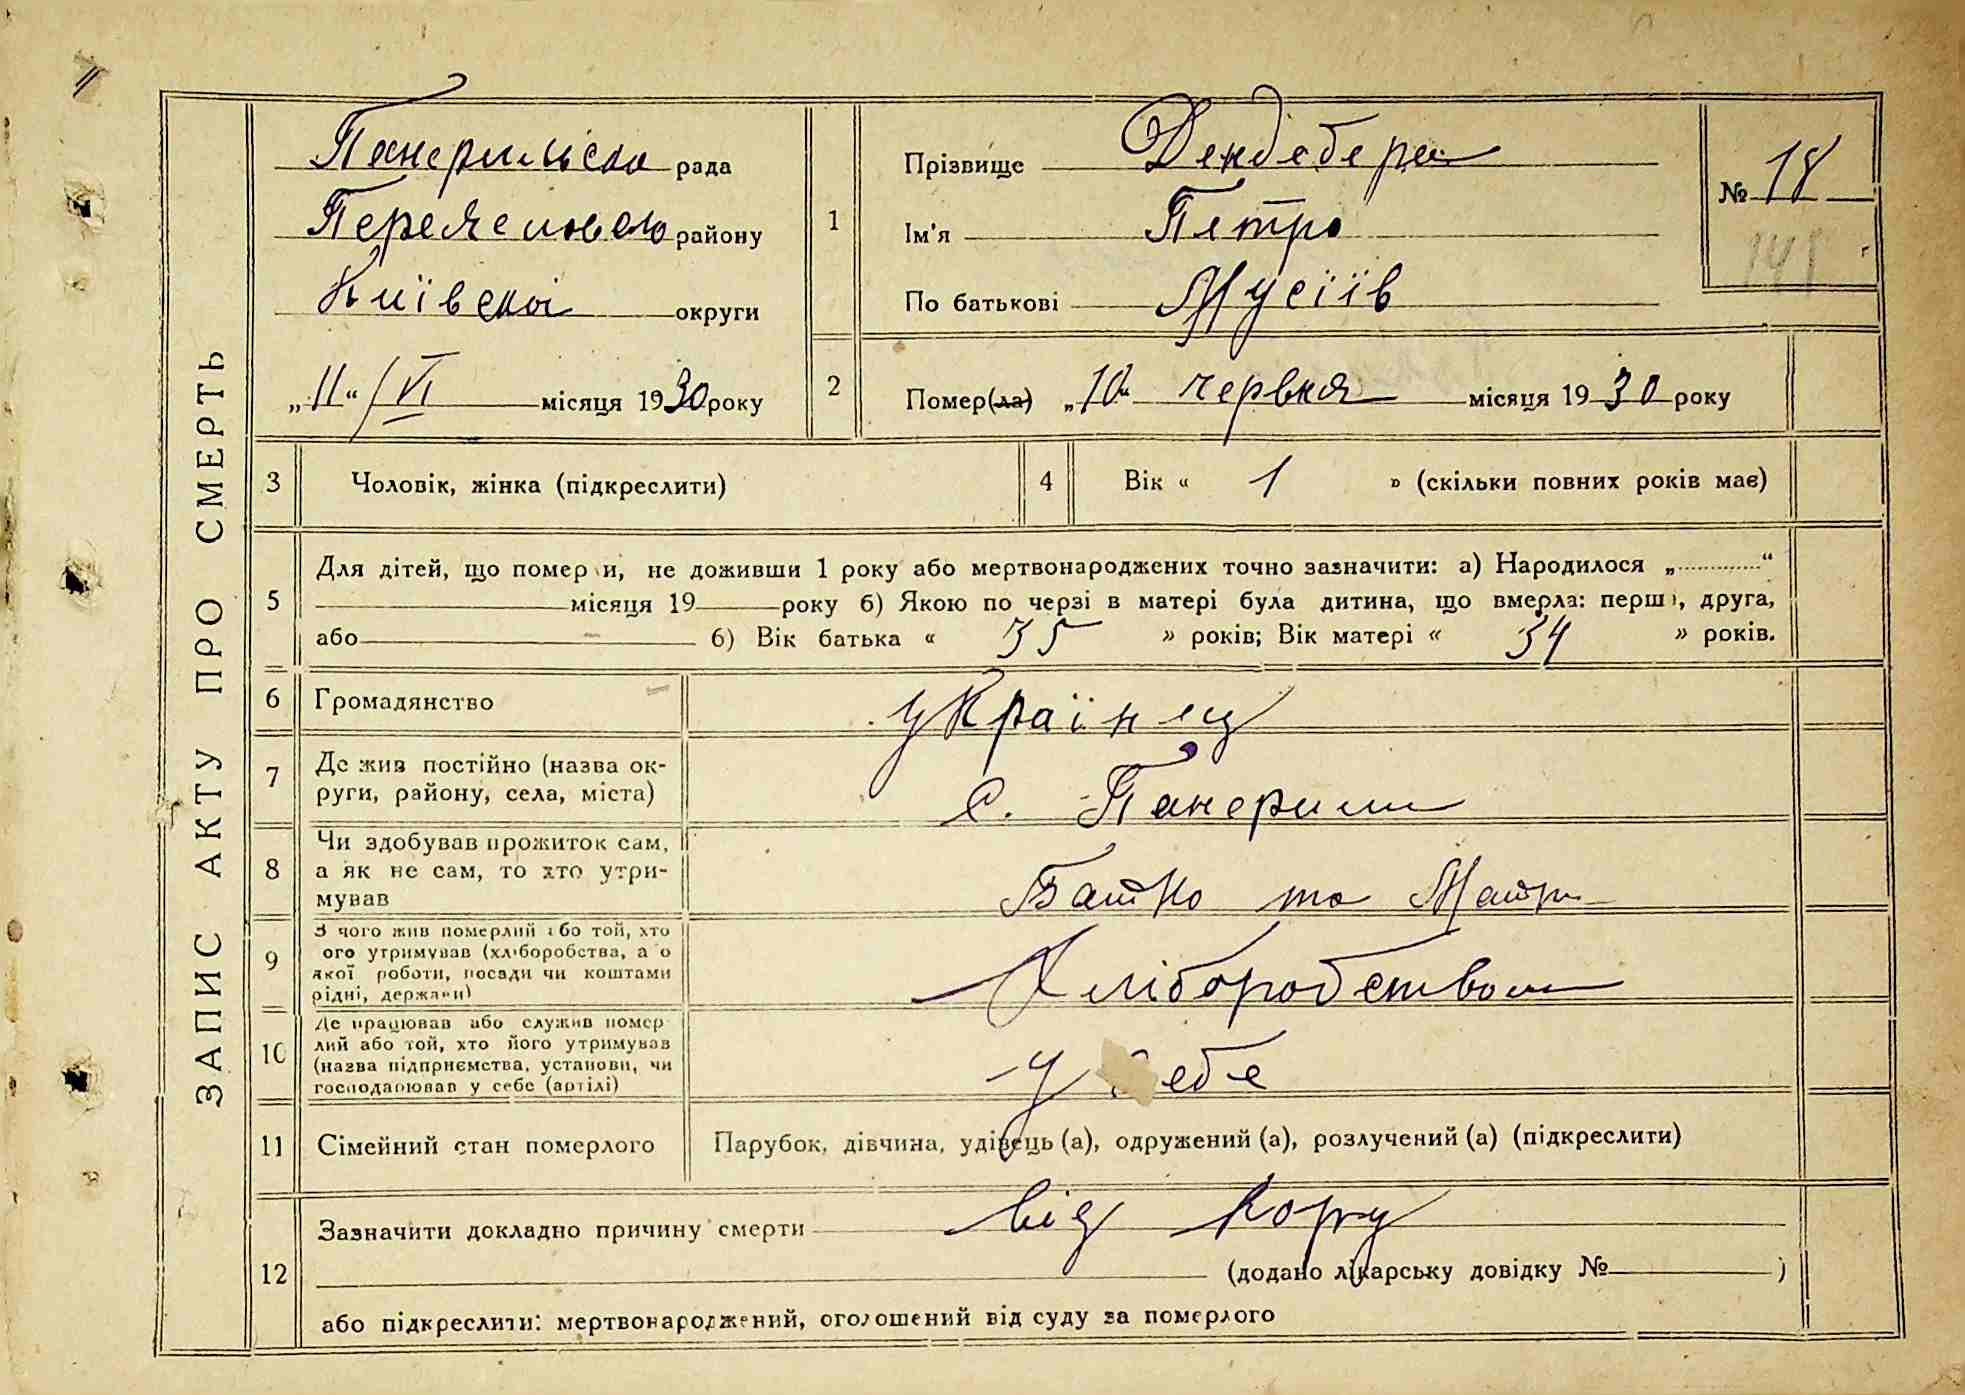 ЗАПИС АКТУ ПРО СМЕРТЬ
Панфильска рада
Переяславського району
Київскої округи
„11“/VI місяця 1930 року
1
Прізвище Дендебера
Ім'я Петро
По батькові Мусіїв
№ 18
141
2
Помер(ла) „10“ червня місяця 1930 року
3
Чоловік, жінка (підкреслити)
4
Вік « 1 » (скільки повних років має)
5
Для дітей, що померли, не доживши 1 року або мертвонароджених точно зазначити: а) Народилося „ “
місяця 19 року б) Якою по черзі в матері була дитина, що вмерла: перша, друга,
або б) Вік батька « 35 » років; Вік матері « 34 » років.
6
Громадянство
українец
7
Де жив постійно (назва ок-
руги, району, села, міста)
с.
8
Чи здобував прожиток сам,
а як не сам, то хто утри-
мував
Батко та Мати
9
З чого жив померлий або той, хто
ого утримував (хліборобства, а о
якої роботи, посади чи коштами
рідні, держави)
Хліборобством
10
Де працював або служив помер
лий або той, хто його утримував
(назва підприємства, установи, чи
господарював у себе (артілі)
у себе
11
Сімейний стан померлого
Парубок, дівчина, удівець (а), одружений (а), розлучений (а) (підкреслити)
12
Зазначити докладно причину смерти від кору
(додано лікарську довідку № )
або підкреслити: мертвонароджений, оголошений від суду за померлого